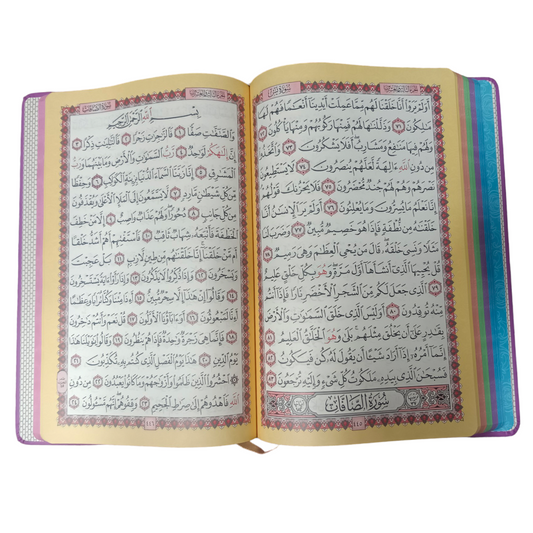 سُورَةُ يسٓ
أَوَلَمْ يَرَوْا أَنَّا خَلَقْنَا لَهُمْ مِمَّا عَمِلَتْ أَيْدِينَا أَنْعَامًا فَهُمْ لَهَا
مَالِكُونَ ٧١ وَذَلَّلْنَاهَا لَهُمْ فَمِنْهَا رَكُوبُهُمْ وَمِنْهَا يَأْكُلُونَ ٧٢
وَلَهُمْ فِيهَا مَنَافِعُ وَمَشَارِبُ أَفَلَا يَشْكُرُونَ ٧٣ وَاتَّخَذُوا
مِنْ دُونِ اللّٰهِ آلِهَةً لَعَلَّهُمْ يُنْصَرُونَ ٧٤ لَا يَسْتَطِيعُونَ
نَصْرَهُمْ وَهُمْ لَهُمْ جُنْدٌ مُحْضَرُونَ ٧٥ فَلَا يَحْزُنْكَ قَوْلُهُمْ
إِنَّا نَعْلَمُ مَا يُسِرُّونَ وَمَا يُعْلِنُونَ ٧٦ أَوَلَمْ يَرَ الْإِنْسَانُ أَنَّا
خَلَقْنَاهُ مِنْ نُطْفَةٍ فَإِذَا هُوَ خَصِيمٌ مُبِينٌ ٧٧ وَضَرَبَ لَنَا
مَثَلًا وَنَسِيَ خَلْقَهُ قَالَ مَنْ يُحْيِي الْعِظَامَ وَهِيَ رَمِيمٌ ٧٨
قُلْ يُحْيِيهَا الَّذِي أَنْشَأَهَا أَوَّلَ مَرَّةٍ وَهُوَ بِكُلِّ خَلْقٍ عَلِيمٌ
٧٩ الَّذِي جَعَلَ لَكُمْ مِنَ الشَّجَرِ الْأَخْضَرِ نَارًا فَإِذَا أَنْتُمْ
مِنْهُ تُوقِدُونَ ٨٠ أَوَلَيْسَ الَّذِي خَلَقَ السَّمٰوَاتِ وَالْأَرْضَ
بِقَادِرٍ عَلَى أَنْ يَخْلُقَ مِثْلَهُمْ بَلَى وَهُوَ الْخَلَّاقُ الْعَلِيمُ ٨١
إِنَّمَا أَمْرُهُ إِذَا أَرَادَ شَيْئًا أَنْ يَقُولَ لَهُ كُنْ فَيَكُونُ ٨٢
فَسُبْحَانَ الَّذِي بِيَدِهِ مَلَكُوتُ كُلِّ شَيْءٍ وَإِلَيْهِ تُرْجَعُونَ ٨٣
سُورَةُ الصَّافَّاتِ
٤٤٥
بِسْمِ اللّٰهِ الرَّحْمٰنِ الرَّحِيمِ
وَالصَّافَّاتِ صَفًّا ١ فَالزَّاجِرَاتِ زَجْرًا ٢ فَالتَّالِيَاتِ ذِكْرًا ٣
إِنَّ إِلٰهَكُمْ لَوَاحِدٌ ٤ رَبُّ السَّمٰوَاتِ وَالْأَرْضِ وَمَا بَيْنَهُمَا وَرَبُّ
الْمَشَارِقِ ٥ إِنَّا زَيَّنَّا السَّمَاءَ الدُّنْيَا بِزِينَةٍ الْكَوَاكِبِ ٦ وَحِفْظًا
مِنْ كُلِّ شَيْطَانٍ مَارِدٍ ٧ لَا يَسَّمَّعُونَ إِلَى الْمَلَإِ الْأَعْلَى وَيُقْذَفُونَ
مِنْ كُلِّ جَانِبٍ ٨ دُحُورًا وَلَهُمْ عَذَابٌ وَاصِبٌ ٩ إِلَّا مَنْ خَطِفَ
الْخَطْفَةَ فَأَتْبَعَهُ شِهَابٌ ثَاقِبٌ ١٠ فَاسْتَفْتِهِمْ أَهُمْ أَشَدُّ خَلْقًا
أَمْ مَنْ خَلَقْنَا إِنَّا خَلَقْنَاهُمْ مِنْ طِينٍ لَازِبٍ ١١ بَلْ عَجِبْتَ
وَيَسْخَرُونَ ١٢ وَإِذَا ذُكِّرُوا لَا يَذْكُرُونَ ١٣ وَإِذَا رَأَوْا آيَةً يَسْتَسْخِرُونَ
١٤ وَقَالُوا إِنْ هٰذَا إِلَّا سِحْرٌ مُبِينٌ ١٥ أَإِذَا مِتْنَا وَكُنَّا تُرَابًا وَعِظَامًا
أَإِنَّا لَمَبْعُوثُونَ ١٦ أَوَآبَاؤُنَا الْأَوَّلُونَ ١٧ قُلْ نَعَمْ وَأَنْتُمْ دَاخِرُونَ
١٨ فَإِنَّمَا هِيَ زَجْرَةٌ وَاحِدَةٌ فَإِذَا هُمْ يَنْظُرُونَ ١٩ وَقَالُوا يَا وَيْلَنَا هٰذَا
يَوْمُ الدِّينِ ٢٠ هٰذَا يَوْمُ الْفَصْلِ الَّذِي كُنْتُمْ بِهِ تُكَذِّبُونَ ٢١
احْشُرُوا الَّذِينَ ظَلَمُوا وَأَزْوَاجَهُمْ وَمَا كَانُوا يَعْبُدُونَ ٢٢ مِنْ دُونِ
اللّٰهِ فَاهْدُوهُمْ إِلَى صِرَاطِ الْجَحِيمِ ٢٣ وَقِفُوهُمْ إِنَّهُمْ مَسْئُولُونَ ٢٤
٤٤٦